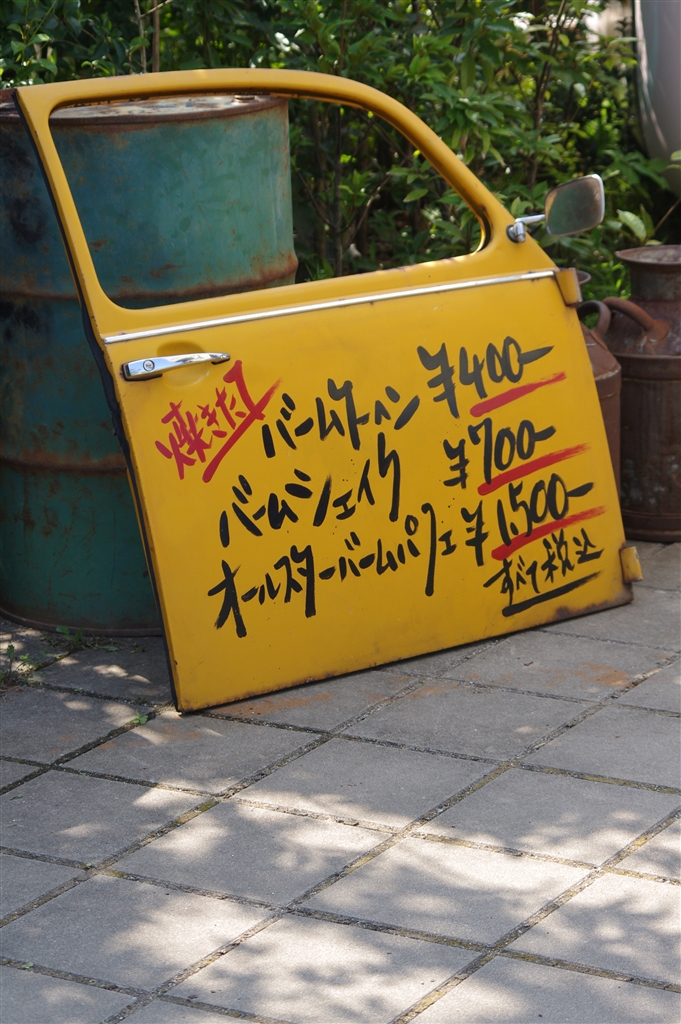 焼きたて バームクーヘン ¥400-
バームシェイク ¥700-
オールスターバームパフェ ¥1,500-
すべて税込